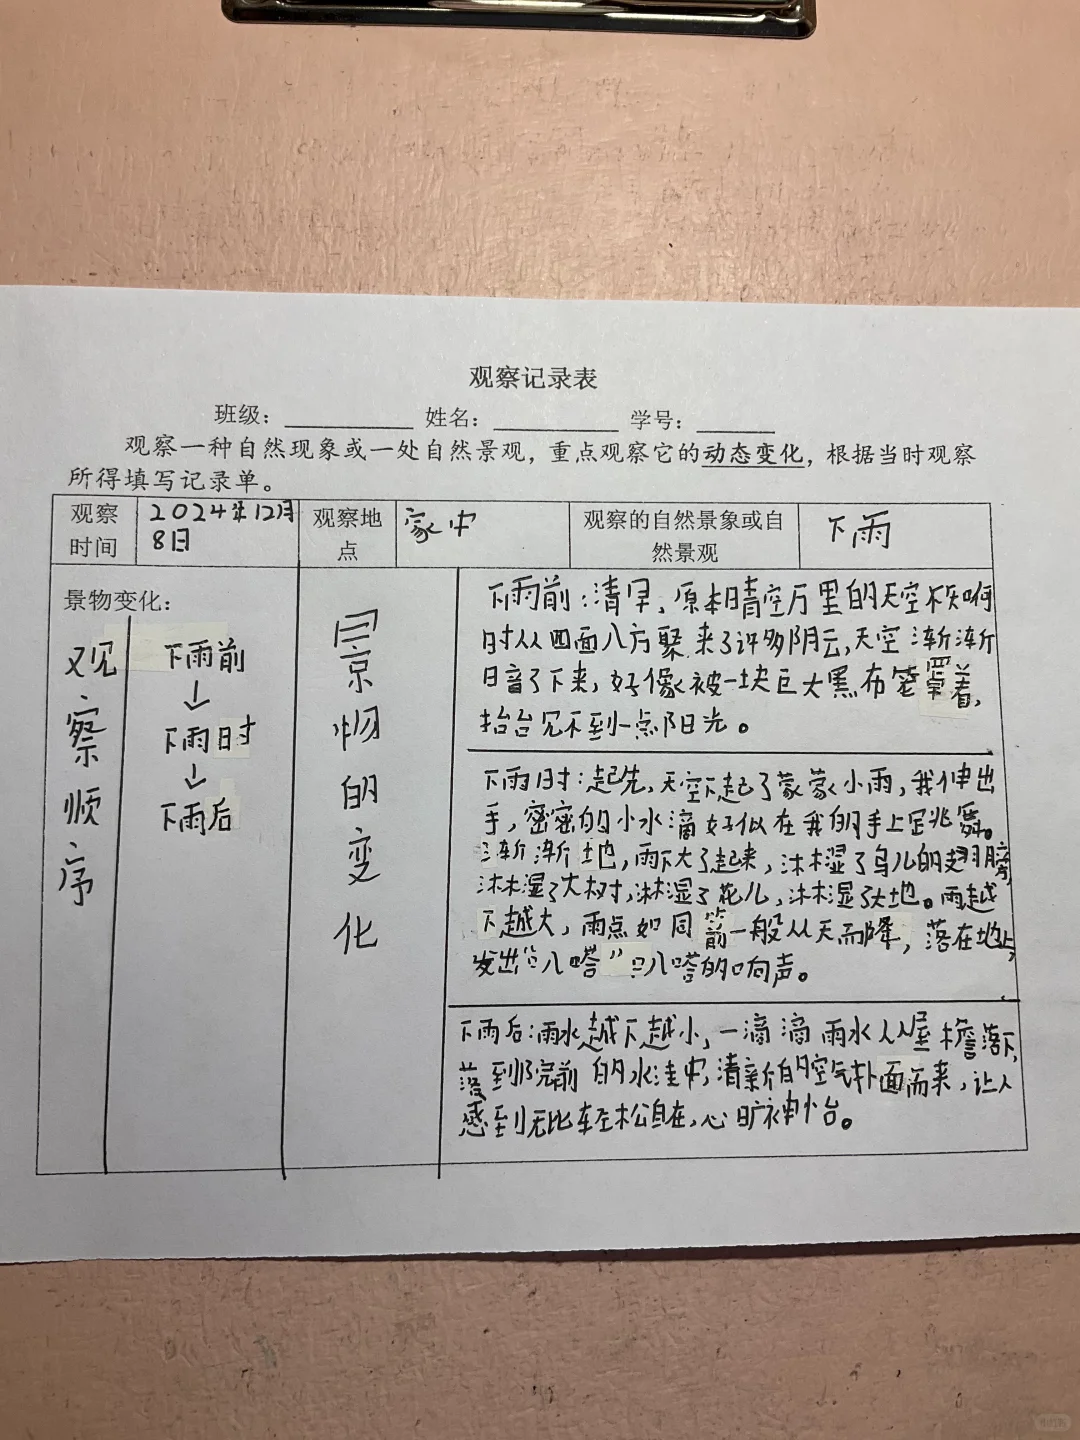 观察记录表
班级: 姓名: 学号:
观察一种自然现象或一处自然景观，重点观察它的动态变化，根据当时观察
所得填写记录单。
观察时间
2024年12月
8日
观察地点
家中
观察的自然景象或自然景观
下雨
景物变化:
观察顺序
下雨前
↓
下雨时
↓
下雨后
景物的变化
下雨前:清早，原本晴空万里的天空不知何
时从四面八方聚来了许多阴云，天空渐渐
暗了下来，好像被一块巨大黑布笼罩着，
抬台见不到一点阳光。
下雨时:起先，天空下起了蒙蒙小雨，我伸出
手，密密的小水滴好似在我的手上跳舞。
渐渐地，雨下大了起来，沐湿了鸟儿的翅膀，
淋湿了大树，淋湿了花儿，淋湿了大地。雨越
下越大，雨点如同箭一般从天而降，落在地上，
发出“叭嗒”叭嗒的响声。
下雨后:雨水越下越小，一滴滴雨水从屋檐落下，
落到院前的水洼中，清新的空气扑面而来，让人
感到无比轻松自在，心旷神怡。